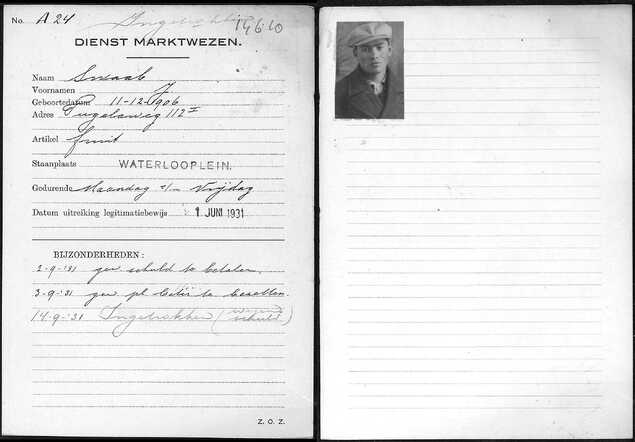 No. A 24 Ingetrokken 14610
DIENST MARKTWEZEN.
Naam Swaab
Voornamen J
Geboortedatum 11-12-1906
Adres 112 I
Artikel fruit
Staanplaats WATERLOOPLEIN.
Gedurende Maandag t/m Vrijdag
Datum uitreiking legitimatiebewijs 1 JUNI 1931
BIJZONDERHEDEN:
2-9-'31 gew schuld te betalen.
3-9-'31 gew pl te bezetten.
14-9-'31 Ingetrokken (wegens schuld)
Z. O. Z.